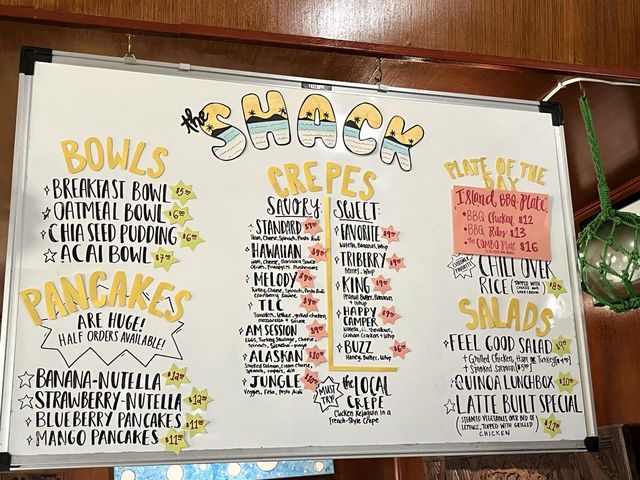 the SHACK
BOWLS
BREAKFAST BOWL $5.00
OATMEAL BOWL $6.00
CHIA SEED PUDDING $6.00
ACAI BOWL $7.00
PANCAKES
ARE HUGE!
HALF ORDERS AVAILABLE!
BANANA-NUTELLA $12.00
STRAWBERRY-NUTELLA $12.00
BLUEBERRY PANCAKES $11.00
MANGO PANCAKES $11.00
CREPES
SAVORY:
STANDARD $9.00
Ham, Cheese, Spinach, Pesto Aioli
HAWAIIAN $9.00
Ham, Cheese, Marinara Sauce
Olives, Pineapples, Mushrooms
MELODY
Turkey, Cheese, Spinach, Pesto Aioli
Cranberry Sauce
TLC
Tomatoes, Lettuce, grilled chicken,
mozzarella + sauce
AM SESSION $9.00
Eggs, Turkey Sausage, Cheese
Spinach,
ALASKAN $10.00
Smoked Salmon, Cream Cheese,
Spinach, Capers,
JUNGLE
Veggies, Feta, Pesto Aioli
SWEET:
FAVORITE
Nutella, Bananas, Whip
TRIBERRY
Berries, Whip
KING
Peanut Butter, Bananas
+ Whip
HAPPY
CAMPER
Nutella, Marshmallows,
Graham Cracker + Whip
BUZZ
Honey, Butter, Whip
MUST TRY!
the LOCAL
CREPE
Chicken Kelaguin in a
French-Style Crepe
PLATE OF THE
DAY
Island BBQ Plate
• BBQ Chicken $12
• BBQ Ribs $13
• the COMBO Plate $16
CUSTOMER FAVORITE!
CHILI OVER
RICE TOPPED WITH
CHEESE AND
SOUR CREAM
SALADS
FEEL GOOD SALAD
+ Grilled Chicken, Ham or Turkey
+ Smoked Salmon
QUINOA LUNCHBOX $10.00
LATTE BUILT SPECIAL
(STEAMED VEGETABLES OVER BED OF
LETTUCE, TOPPED WITH GRILLED
CHICKEN $11.00